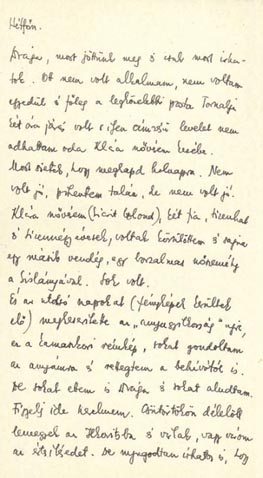 Hétfőn.
Drága, most jöttünk meg s csak most írha-
tok. Ott nem volt alkalmam, nem voltam
egyedül s főleg a legközelebbi posta Tornalja
két óra járás volt s ilyen címzésű levelet nem
adhattam oda Klára nővérem kezébe.
Most sietek, hogy megkapd holnapra. Nem
volt jó, pihentem talán, de nem volt jó.
Klára nővérem két fia, tizenhat
s tizennégy évesek, voltak körülöttem s rajta
egy másik vendég, egy borzalmas nőszemély
a kislányával. Sok volt.
És az utolsó napokat (fényképek kerültek
elő) megkeserítette az „anyagiasság"
ez a rémkép, sokat gondoltam
az anyámra s rettegtem a behívótól is.
De sokat ettem is Drága s sokat aludtam.
Figyelj ide kedvesem. Csütörtökön délelőtt
lemegyek az s várlak, vagy
az De nyugodtan írhatsz is, hogy